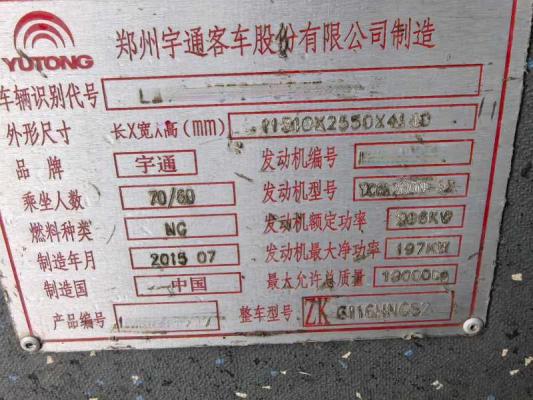 YUTONG 郑州宇通客车股份有限公司制造
车辆识别代号
外形尺寸 长X宽X高(mm)
品牌 宇通 发动机编号
乘坐人数 70/60 发动机型号
燃料种类 NG 发动机额定功率
制造年月 2015 07 发动机最大净功率 197KW
制造国 中国 最大允许总质量
产品编号 整车型号: ZK